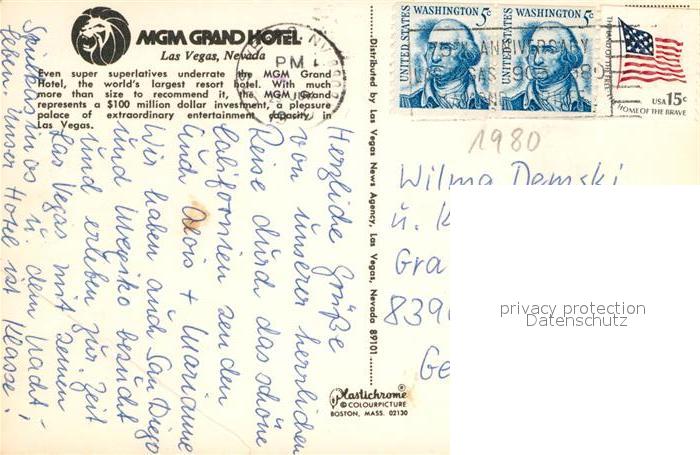 MGM GRAND HOTEL
Las Vegas, Nevada
Even super superlatives underrate the MGM Grand
Hotel, the world's largest resort hotel. With much
more than size to recommend it, the MGM Grand
represents a $100 million dollar investment, a pleasure
palace of extraordinary entertainment capacity in
Las Vegas.
Herzliche Grüße
von unserer herrlichen
Reise durch das schöne
Californien senden
Euch Alois + Marianne
Wir haben auch San Diego
und Mexiko besucht
und erleben zur Zeit
Las Vegas mit seinen
u. dem Nacht-
leben. Unser Hotel ist Klasse!
Distributed by Las Vegas News Agency, Las Vegas, Nevada 89101
Plastichrome®
© COLOURPICTURE
BOSTON, MASS. 02130
UNITED STATES
WASHINGTON 5c
UNITED STATES
WASHINGTON 5c
USA 15c
HOME OF THE BRAVE
PM
ANNIVERSARY
1980
Wilma Demski
u. K
Gra
839
Ge
privacy protection
Datenschutz